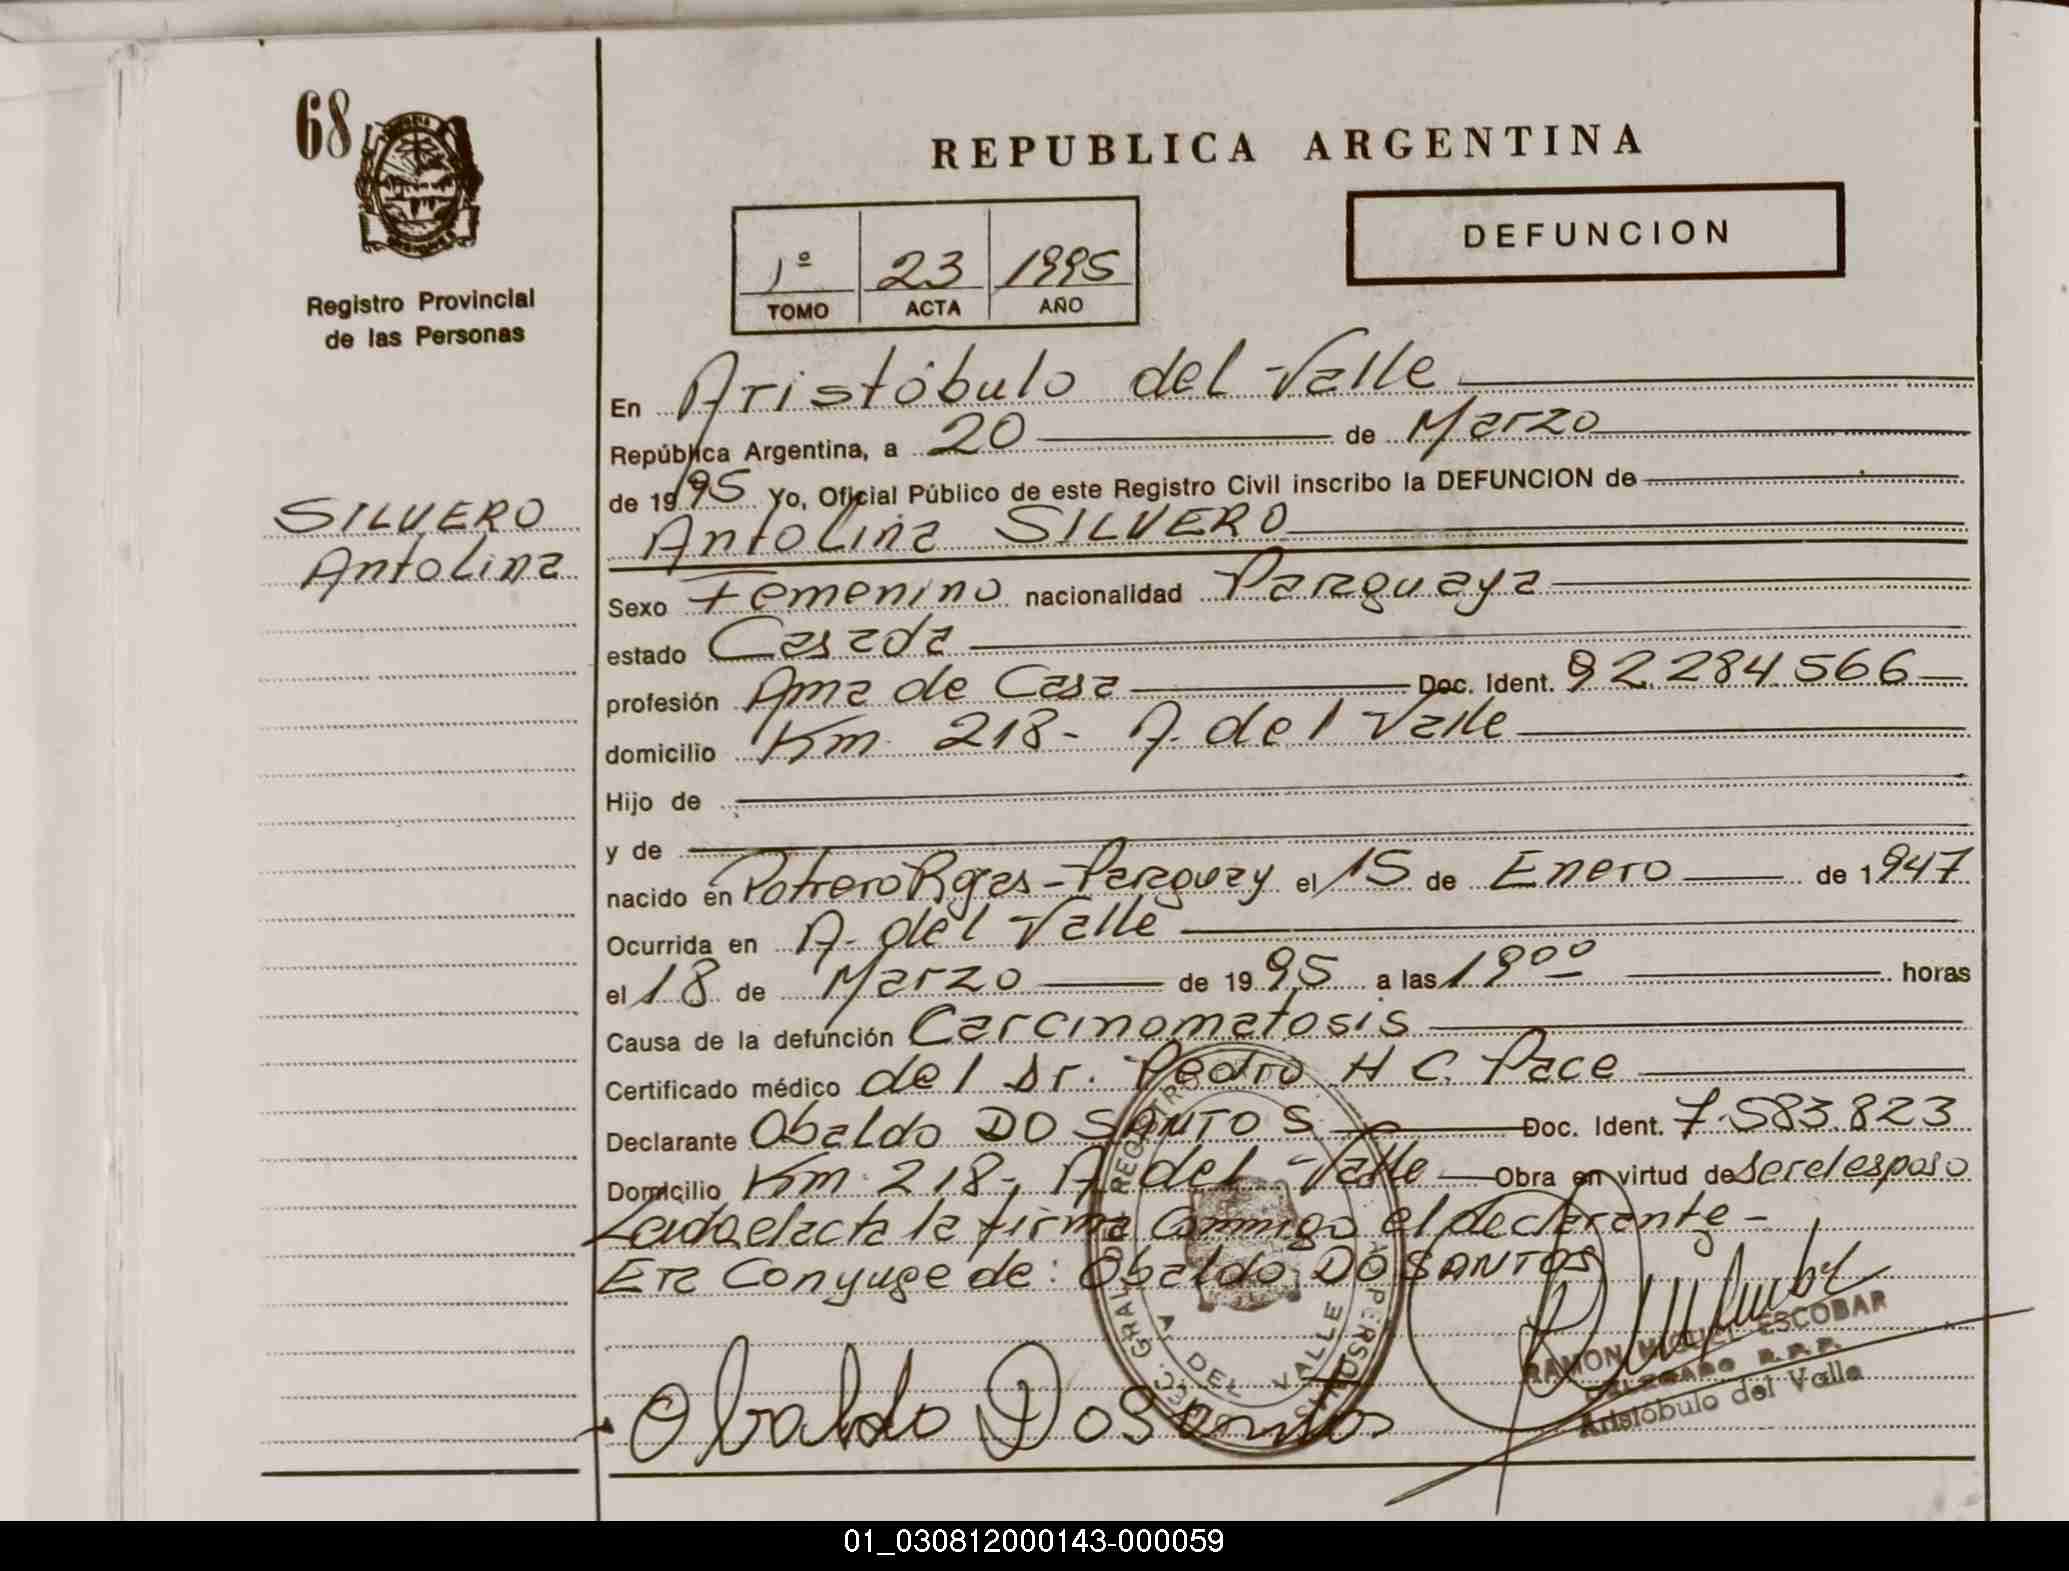 68
Registro Provincial
de las Personas
SILVERO
Antolina
REPUBLICA ARGENTINA
DEFUNCION
1º 23 1995
TOMO ACTA AÑO
En Aristóbulo del Valle
República Argentina, a 20 de Marzo
de 1995 Yo, Oficial Público de este Registro Civil inscribo la DEFUNCION de
Antolina SILVERO
Sexo Femenino nacionalidad Paraguaya
estado Casada
profesión Ama de Casa Doc. Ident. 92.284.566
domicilio Km. 218- A. del Valle
Hijo de
y de
nacido en Potrero Rojas - Paraguay el 15 de Enero de 1947
Ocurrida en A. del Valle
el 18 de Marzo de 1995 a las 19⁰⁰ horas
Causa de la defunción Carcinomatosis
Certificado médico del Dr. Pedro H C. Pace
Declarante Obaldo DO SANTOS Doc. Ident. 7.583.823
Domicilio Km. 218-, A. del Valle Obra en virtud de ser el esposo
Leida el acta la firma Conmigo el declarante-
Era Conyuge de: Obaldo DO SANTOS
A. DEL VALLE
Obaldo Do Santos
RAMON MIGUEL ESCOBAR
DELEGADO R.P.P.
Aristóbulo del Valle
01_030812000143-000059